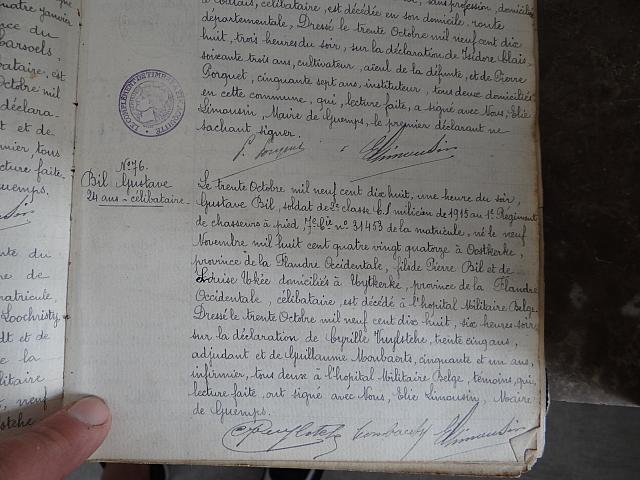 quatre janvier
ce du
arsoels,
bataige, est
Octobre mil
déclara-
t et de
mier, tous
cture faite
uemps.
nte du
re de
matricule,
Loochristy,
dt et de
e la
litaire
neuf
tsche
célibataire, est décédée en son domicile, route
départementale, Dressé le trente Octobre mil neuf cent dix
huit, trois heures du soir, sur la déclaration de Isidore Blais,
soixante trois ans, cultivateur, aïeul de la défunte, et de Pierre
Porquet, cinquante sept ans, instituteur, tous deux domiciliés
en cette commune, qui, lecture faite, a signé avec Nous, Elie
Limousin, Maire de Guemps, le premier déclarant ne
sachant signer.
P. Porquet ELimousin
N° 76.
Bil Gustave
24 ans - célibataire
Le trente Octobre mil neuf cent dix huit, une heure du soir,
Gustave Bil, soldat de 2e classe milicien de 1915 au 1er Régiment
de chasseurs à pied, 7e Cie n° 31453 de la matricule, né le neuf
Novembre mil huit cent quatre vingt quatorze à Oostkerke,
province de la Flandre Occidentale, fils de Pierre Bil et de
Louise domiciliés à Uytkerke, province de la Flandre
Occidentale, célibataire, est décédé à l'hopital Militaire Belge.
Dressé le trente Octobre mil neuf cent dix huit, six heures soir,
sur la déclaration de Cyrille Vuylsteke, trente cinq ans,
adjudant et de Guillaume Mombaerts, cinquante et un ans,
infirmier, tous deux à l'hopital Militaire Belge, témoins, qui,
lecture faite, ont signé avec Nous, Elie Limousin, Maire
de Guemps.
CVuylsteke Mombaerts ELimousin